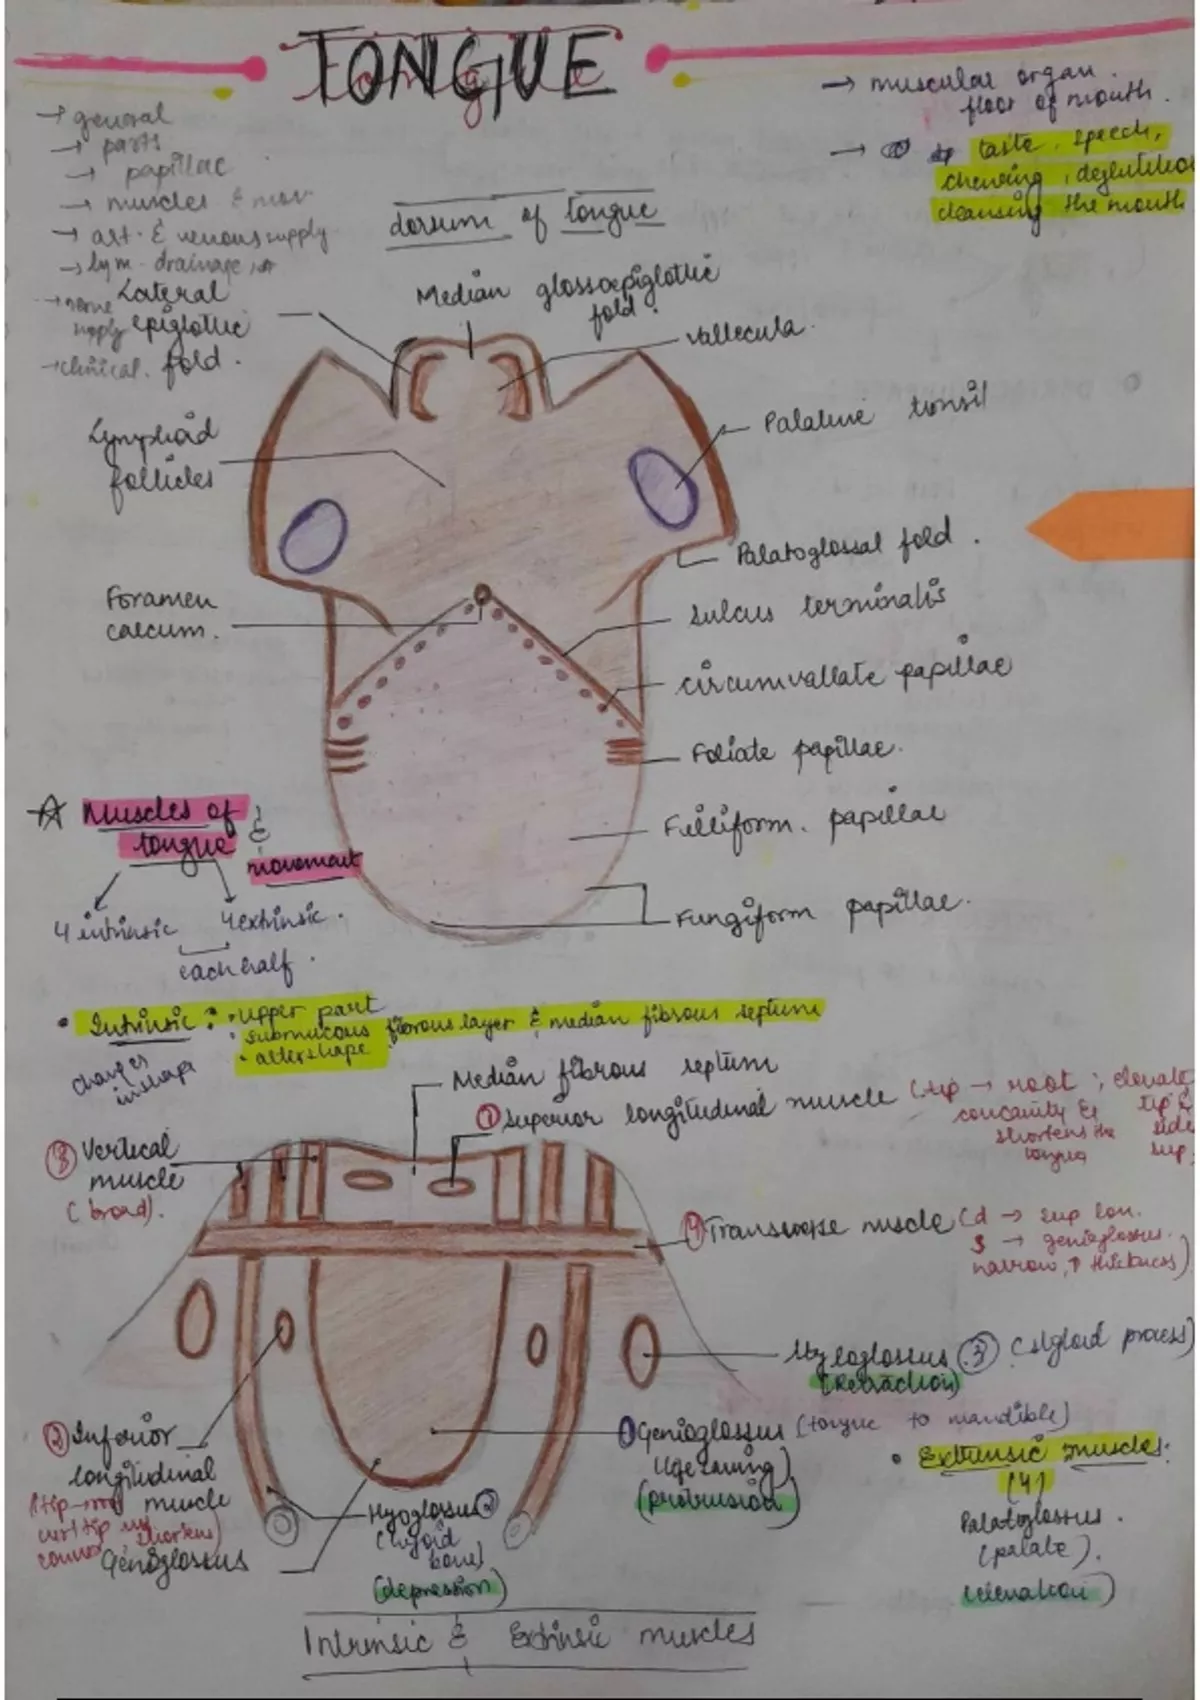 TONGUE
→ general
→ parts
→ papillae
→ muscles & mov
→ art. & venous supply
→ lym. drainage
→ nerve supply
→ clinical.
→ muscular organ.
floor of mouth.
→ taste, speech,
chewing, deglutition
cleansing the mouth
dorsum of tongue
Median glossoepiglottic
fold.
Lateral
epiglottic
fold.
vallecula.
Lymphoid
follicles
Palatine tonsil
Palatoglossal fold.
Foramen
caecum.
Sulcus terminalis
circumvallate papillae
Foliate papillae.
Filliform. papillae
Fungiform papillae.
☆ Muscles of
tongue &
movement
4 intrinsic 4 extrinsic.
each half.
• Intrinsic: • upper part
• submucous fibrous layer & median fibrous septum
• alter shape
changes
in shape
Median fibrous septum
① Superior longitudinal muscle (tip → root; elevate
concavity & tip &
shortens the side
tongue sup.
③ Vertical
muscle
(broad).
④ Transverse muscle (d → sup lon.
S → genioglossus.
narrow, ↑ thickness)
Hyoglossus ③ (styloid process)
(Retraction)
② Inferior
longitudinal
muscle
(tip-root
shortens)
① Genioglossus (tongue to mandible)
(protrusion)
Hyoglossus ②
(hyoid
bone)
(depression)
Genioglossus
• Extrinsic muscles:
(4)
Palatoglossus.
(palate).
(elevation)
Intrinsic & Extrinsic muscles